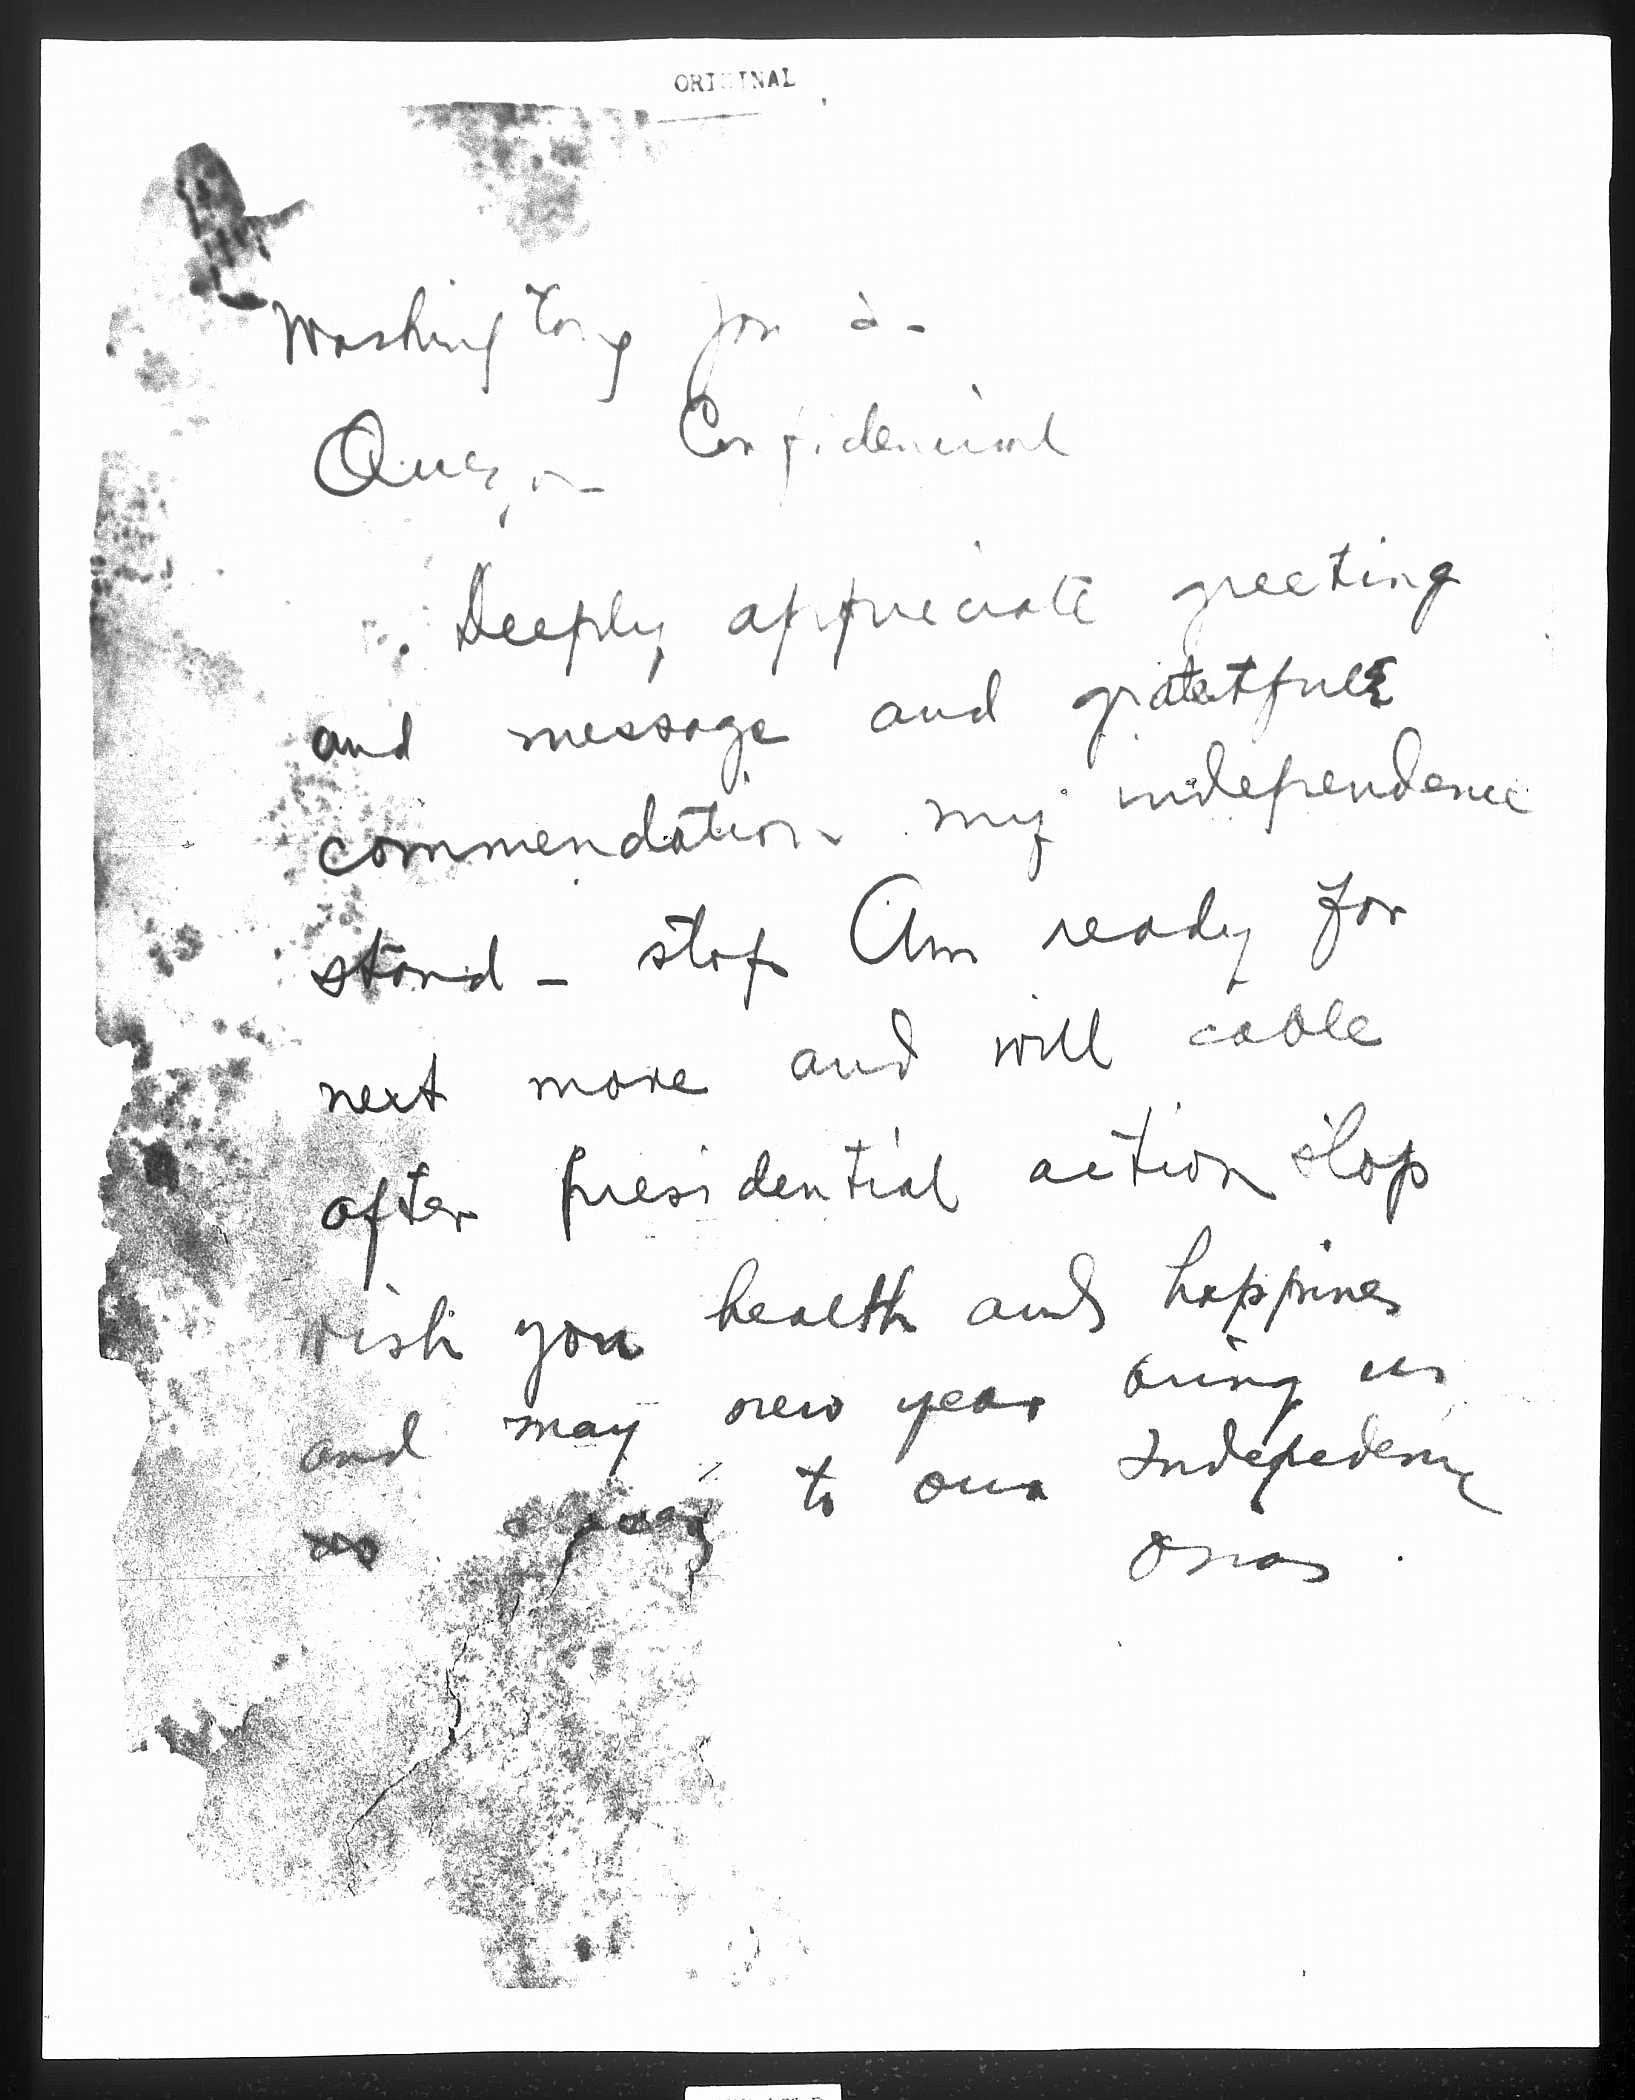 ORIGINAL
Washington Jan
Quezon - Confidencial
Deeply appreciate greeting
and message and
commendation my independence
stand - stop Am ready for
next move and will cable
after presidential action stop
wish you health and happines
and may new year bring us
to our Indepedence
Osias.